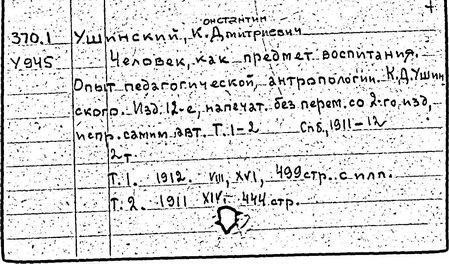 онстантин
370.1 Ушинский, К. Дмитриевич
У945 Человек, как предмет воспитания.
Опыт педагогической антропологии. К.Д.Ушин
ского. Изд. 12-е, напечат. без перем. со 2-го изд,
испр. самим авт. Т. 1-2 Спб, 1911-12
2т
Т.1. 1912. VIII, XVI, 499 стр. с илл.
Т.2. 1911 XIV. 444 стр.